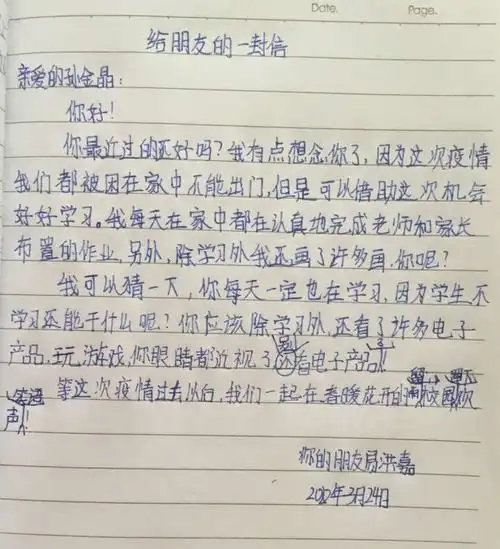 Date. Page.
给朋友的一封信
亲爱的孙金晶：
你好！
你最近过的还好吗？我有点想念你了，因为这次疫情
我们都被困在家中不能出门，但是可以借助这次机会
好好学习。我每天在家中都在认真地完成老师和家长
布置的作业，另外，除学习外我还画了许多画，你呢？
我可以猜一下，你每天一定也在学习，因为学生不
学习还能干什么呢？你应该除学习外，还看了许多电子
产品，玩游戏，你眼睛都近视了 看电子产品！
等这次疫情过去以后，我们一起在春暖花开的校园欢
声！
你的朋友 洪嘉
2020年3月24日